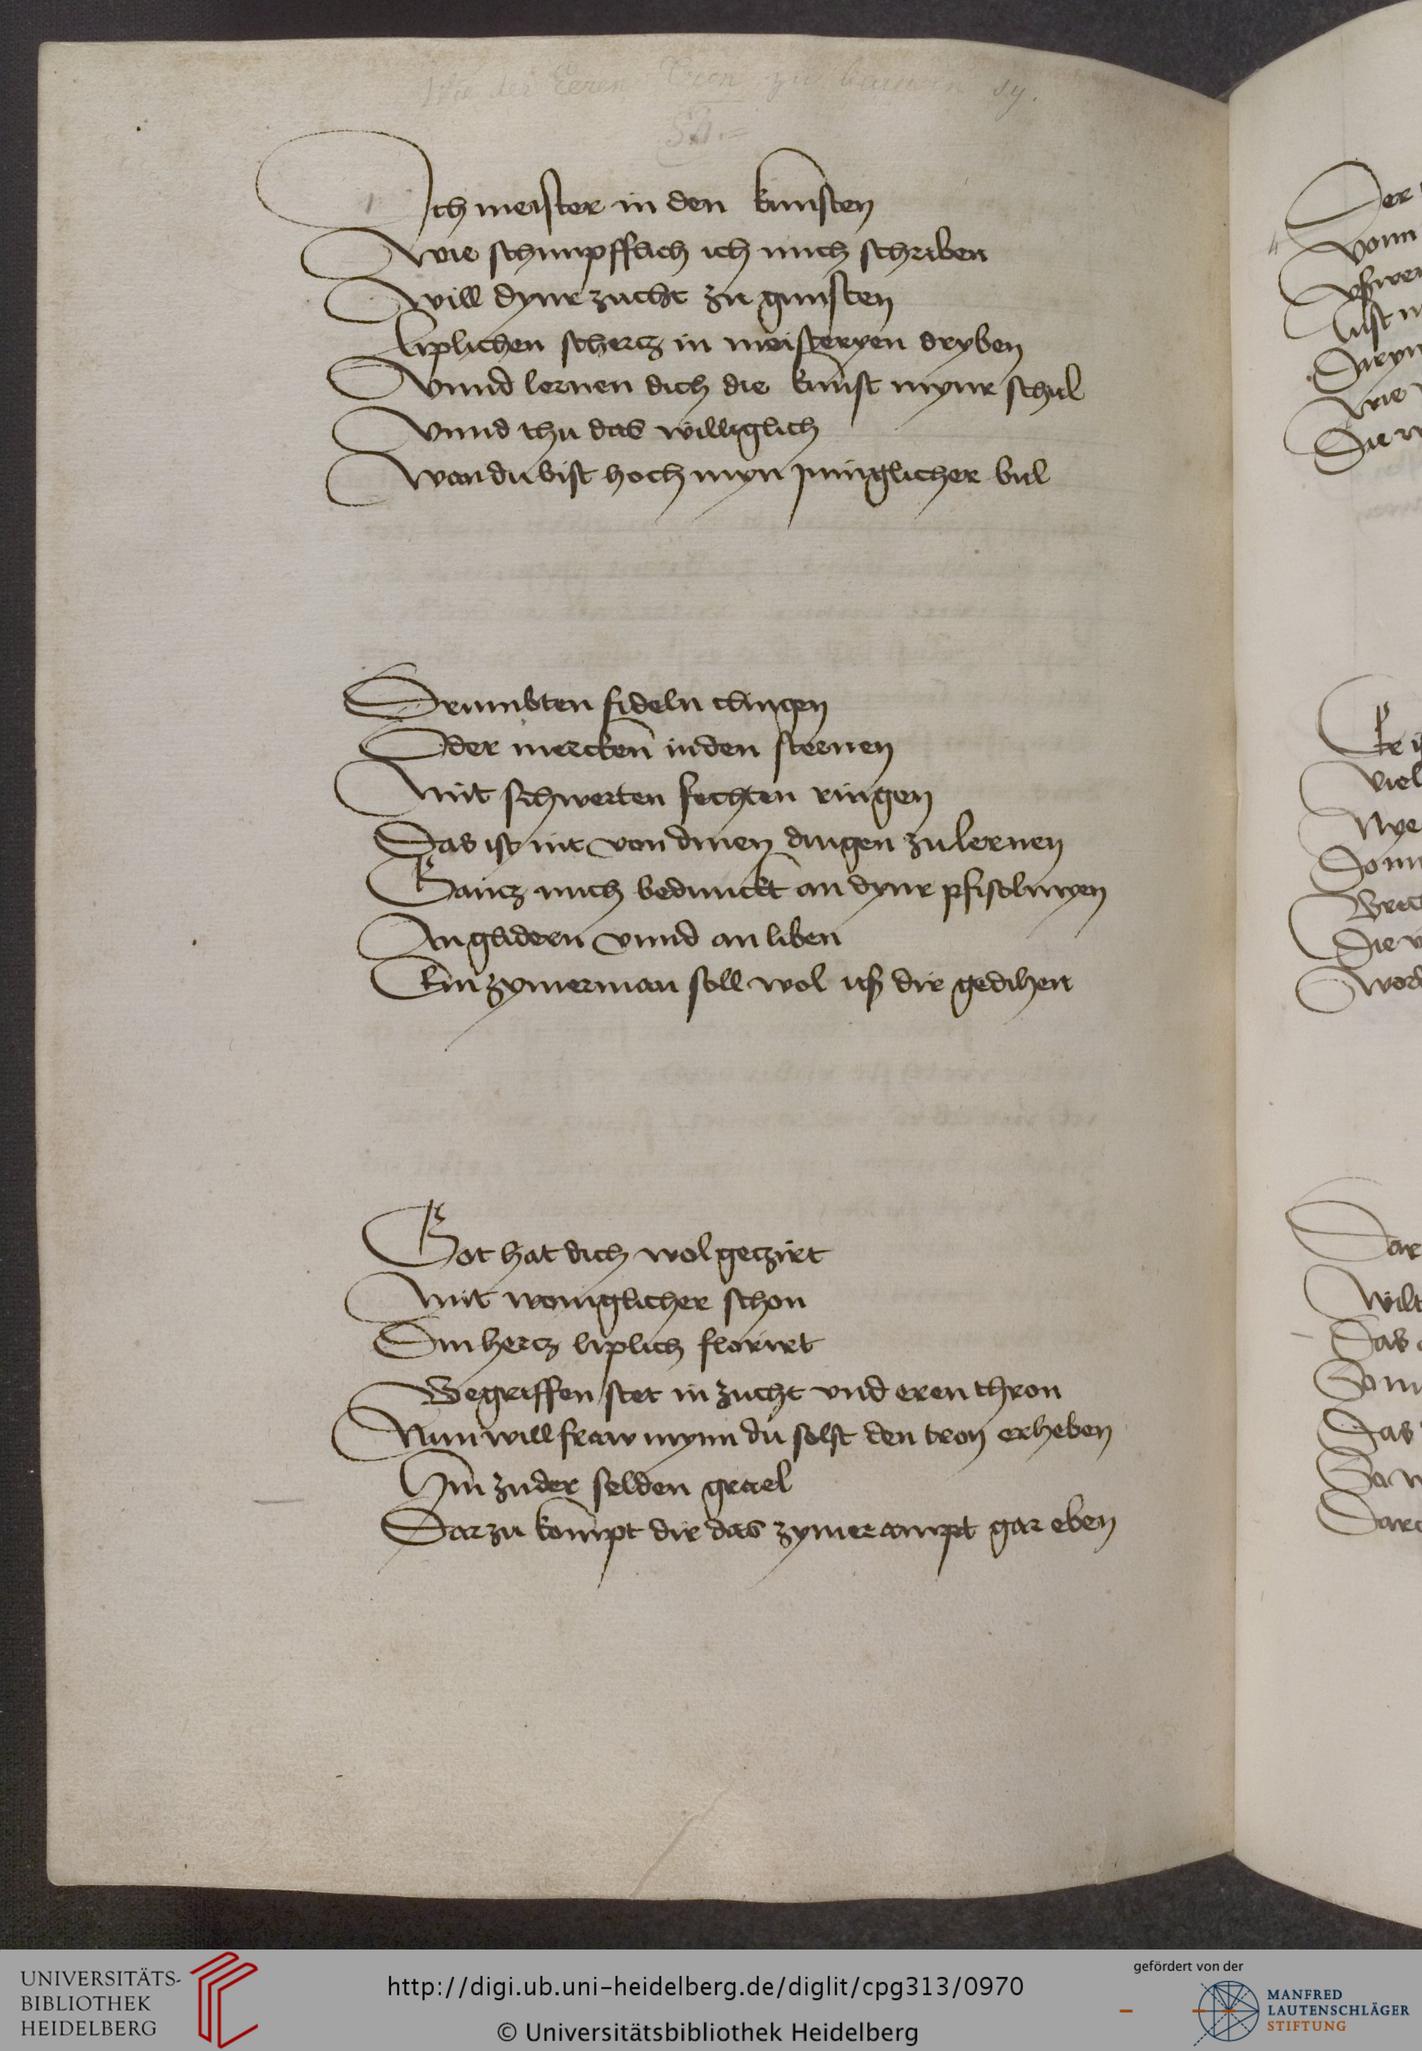 Wie der Eeren Tron zu buwen sy.
Ich meister in den kunsten
Wie schimpfflich ich mich schriben
Will dyne zucht zu gunsten
Liplichen schercz in meisteryen dryben
Vnnd lernen dich die kunst myner schul
Vnnd thu das williglich
Wan du bist hoch myn jnniglicher bul
Drumbten fideln clingen
Oder mercken in den sternen
Mit schwerten fechten ringen
Das ist nit von dinen dingen zu lernen
Gancz mich bedunckt an dyner
An glidern vnnd an liben
Ein zymerman soll wol uß dir gedihen
Got hat dich wol geczirt
Mit wonniglicher schon
Din hercz liplich florirt
Begriffen stet in zucht vnd eren thron
Nun will fraw mynn du solst den tron erheben
Hin zu der selden grael
Dar zu kompt dir das zymer ampt gar eben
UNIVERSITÄTS-
BIBLIOTHEK
HEIDELBERG
http://digi.ub.uni-heidelberg.de/diglit/cpg313/0970
© Universitätsbibliothek Heidelberg
gefördert von der
MANFRED
LAUTENSCHLÄGER
STIFTUNG